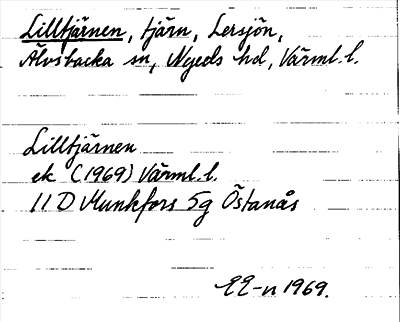 Lilltjärnen, tjärn, Lersjön,
Älvsbacka sn, Nyeds hd, Värml. l.
Lilltjärnen
ek (1969) Värml. l.
11 D Munkfors 5g Östanås
EE-n 1969.